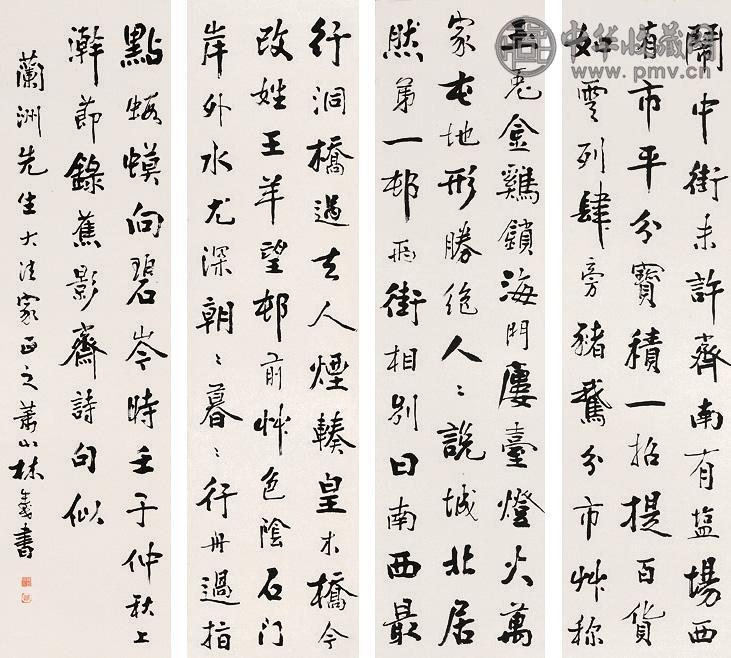 中华收藏网
www.pmv.cn
鬧中街未許齊南有塩場西
有市平分寶積一招提百貨
如雲列肆旁豬鵞分市艸称
兎金雞鎖海門廔臺燈火萬
家屯地形勝絶人〻説城北居
然第一邨兩街相别曰南西最
行洞橋過去人煙輳皇木橋今
改姓王羊望邨前艸色陰石门
岸外水尤深朝〻暮〻行舟過指
點蝦蟆向碧岑時壬子仲秋上
澣節錄蕉影齋詩句似
蘭洲先生大法家正之蕭山林書